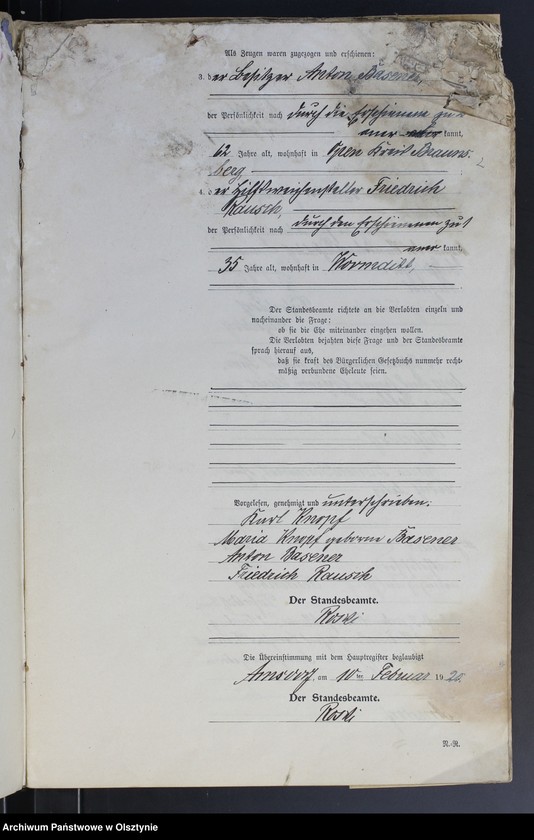 Als Zeugen waren zugezogen und erschienen:
3. der Besitzer Anton Basener
der Persönlichkeit nach durch die Erschienenen
kannt,
62 Jahre alt, wohnhaft in Open Kreis Brauns-
berg
4. der Hilfsweichensteller Friedrich
Rausch,
der Persönlichkeit nach durch den Erschienenen zu 1
kannt,
35 Jahre alt, wohnhaft in Wormditt,
Der Standesbeamte richtete an die Verlobten einzeln und
nacheinander die Frage:
ob sie die Ehe miteinander eingehen wollen.
Die Verlobten bejahten diese Frage und der Standesbeamte
sprach hierauf aus,
daß sie kraft des Bürgerlichen Gesetzbuchs nunmehr recht-
mäßig verbundene Eheleute seien.
Vorgelesen, genehmigt und unterschrieben.
Karl Knopf
Maria Knopf geborene Basener
Anton Basener
Friedrich Rausch
Der Standesbeamte.
Roski
Die Übereinstimmung mit dem Hauptregister beglaubigt
Arnsdorf, am 10ten Februar 1920
Der Standesbeamte.
Roski
N.-R.
Archiwum Państwowe w Olsztynie